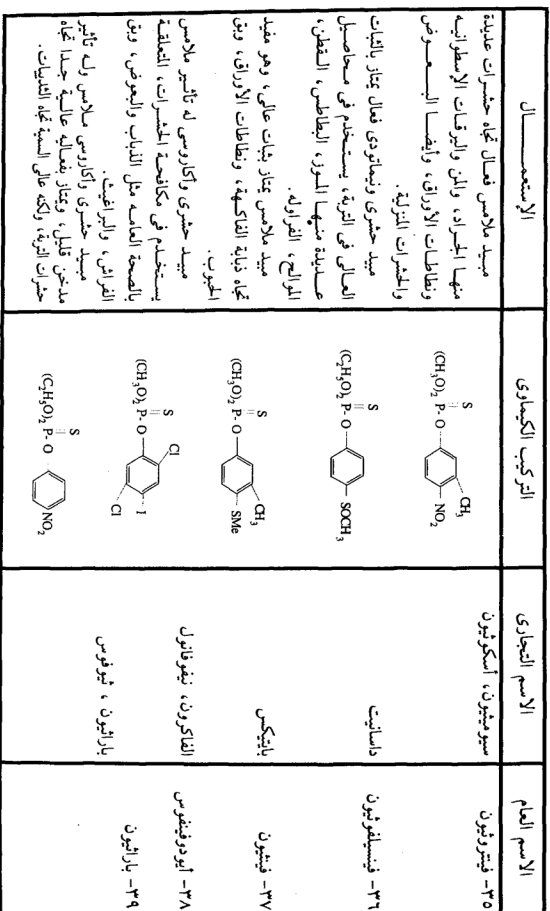 الاسم العام
الاسم التجارى
التركيب الكيماوى
الإستعمــــــال
٣٥- فيتروثيون
سيوميثيون، أسكوثيون
(CH3O)2 P- O
S
CH3
NO2
مبـيد ملامس فعـال تجاه حشـرات عديدة
منهـا الجـراد، والمن والیرقـات الإسطوانيـه
ونطاطـات الأوراق، وأيضـا البــعــوض
والحشرات المنزلية.
٣٦- فينسيلفوثيون
داسانيت
(C2H5O)2 P- O
S
SOCH3
مبيد حشرى ونيماتودى فعال يمتاز بالثبات
العـالى فى التربة، يستـخدم فى محاصـيل
عـديدة منـهـا المـوز، البطاطس، الـقطن،
الموالح، الفراوله.
٣٧- فينثيون
بايتيكس
(CH3O)2 P- O
S
CH3
SMe
مبيد ملامس يمتاز بثبات عالى، وهو مفيد
تجاه ذبابة الفاكـهة، ونطاطات الأوراق، وبق
الحبوب.
٣٨- أيودوفينفوس
الفاكرون، نيفوفانول
(CH3O)2 P- O
S
Cl
I
Cl
مبيـد حشرى وأكاروسى له تأثـير ملامس
يستـخدم فى مكافحـة الحشـرات، المتعلقـة
بالصحة العامـه مثل الذباب والبعوض، وبق
الفراش، والبراغيث.
٣٩- باراثيون
باراثيون ، ثيوفوس
(C2H5O)2 P- O
S
NO2
مبـيد حشـرى وأكاروسى مـلامس ولـه تأثير
مدخن قليل، ويمتاز بفعـاليه عالـية جـدا تجاه
حشرات التربة، ولكنه عالى السمية تجاه الثدييات.